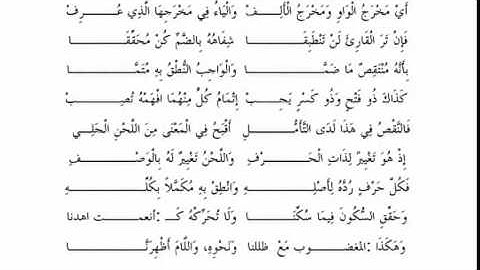 أَيْ مَخْرَجُ الْوَاوِ وَمَخْرَجُ الْأَلِـفْ وَالْيَاءُ فِي مَخْرَجِهَا الَّذِي عُـرِفْ
فَإِنْ تَرَ الْقَارِئَ لَنْ تَنْطَبِقَـا شِفَاهُهُ بِالضَّمِّ كُنْ مُحَقِّقَـا
بِأَنَّهُ مُنْتَقِصٌ مَا ضَمَّـا وَالْوَاجِبُ النُّطْقُ بِهِ مُتَمَّـا
كَذَاكَ ذُو فَتْحٍ وَذُو كَسْرٍ يَجِـبْ إِتْمَامُ كُلٍّ مِنْهُمَا افْهَمْهُ تُصِـبْ
فَالنَّقْصُ فِي هَذَا لَدَى التَّأَمُّـلِ أَقْبَحُ فِي الْمَعْنَى مِنَ اللَّحْنِ الْجَلِـي
إِذْ هُوَ تَغْيِيرٌ لِذَاتِ الْحَـرْفِ وَاللَّحْنُ تَغْيِيرٌ لَهُ بِالْوَصْـفِ
فَكُلَّ حَرْفٍ رُدَّهُ لِأَصْلِـهِ وَانْطِقْ بِهِ مُكَمَّلاً بِكُلِّـهِ
وَحَقِّقِ السُّكُونَ فِيمَا سُكِّنَـا وَلَا تُحَرِّكْهُ كَـ :أنعمت اهدنا
وَهَكَذَا :المغضوب مَعْ ظللنا وَنَحْوِهِ، وَاللَّامَ أَظْهِرَنَّـا